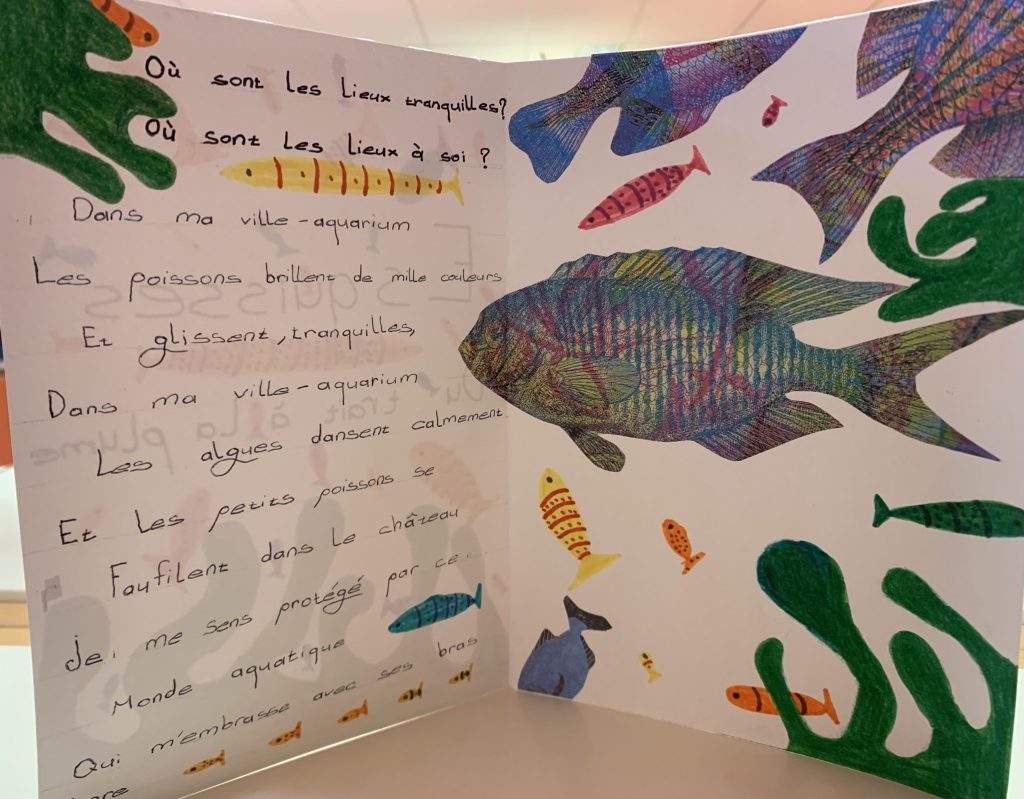 Où sont les lieux tranquilles?
Où sont les lieux à soi ?
Dans ma ville-aquarium
Les poissons brillent de mille couleurs
Et glissent, tranquilles,
Dans ma ville-aquarium
Les algues dansent calmement
Et les petits poissons se
Faufilent dans le château
Je me sens protégé par ce
Monde aquatique
Qui m'embrasse avec ses bras
Esquisses
Du trait à la plume